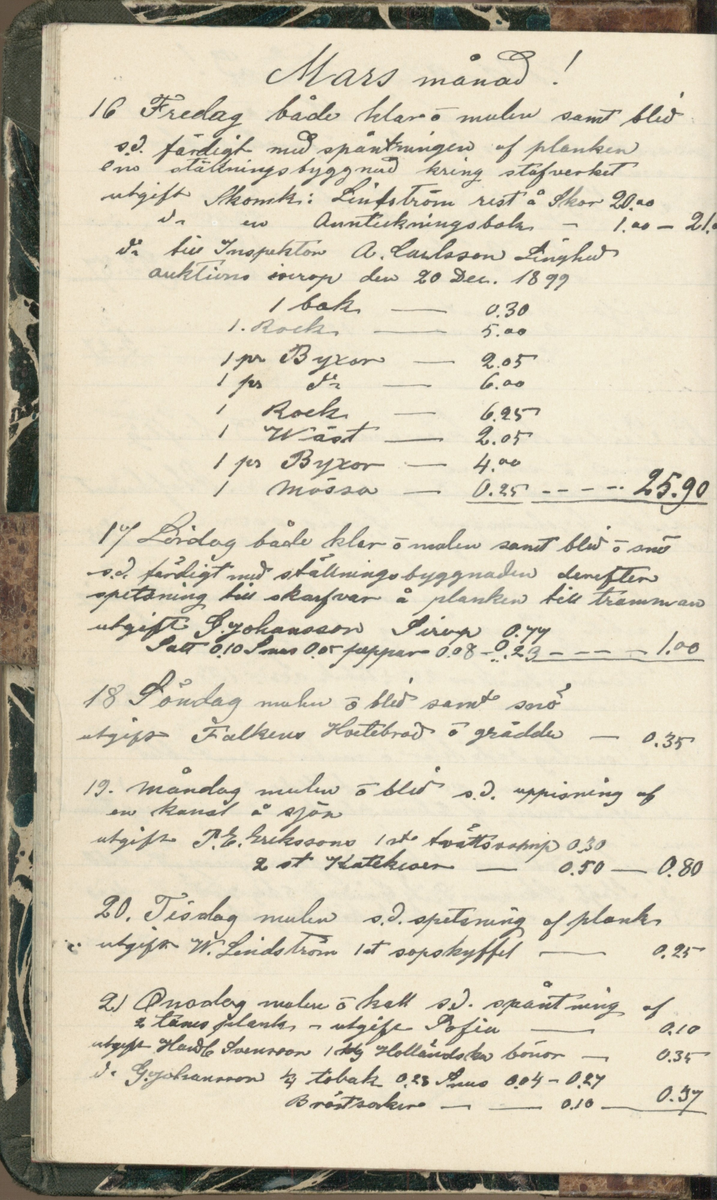 Mars månad!
16 Fredag både klar ō mulen samt blid
s.d. färdigt med spåntningen af planken
ställningsbyggnad kring stafverket
utgift Skomk: Lindström rest å Skor 20.00
do en Anteckningsbok - 1.00 — 21.
do till Inspektor A. Carlsson Linghed
auktions inrop den 20 Dec. 1899
1 bok — 0.30
1. Rock — 5.00
1 pr Byxor — 2.05
1 pr do — 6.00
1 Rock — 6.25
1 Wäst — 2.05
1 pr Byxor — 4.00
1 Mössa — 0.25 - - - - 25.90
17 Lördag både klar ō mulen samt blid ō snö
s.d. färdigt med ställningsbyggnaden derefter
spetsning till skarfvar å planken till tramman
utgift G. Johansson Sirap 0.77
Salt 0.10 Snus 0.05 peppar 0.08 - 0.23 - - - 1.00
18 Söndag mulen ō blid samt snö
utgift Falkens Hvetebröd ō grädde — 0.35
19. Måndag mulen ō blid s.d. uppisning af
en kanal å sjön
utgift P.E. Erikssons 1 st tvättsvamp 0.30
2 st Katekeser — 0.50 — 0.80
20. Tisdag mulen s.d. spetsning af plank
utgift W. Lindström 1 st sopskyffel — 0.25
21 Onsdag mulen ō kall s.d. spåntning af
2 tums plank - utgift Sofia — 0.10
utgift Svensson 1 Holländska bönor — 0.35
do G. Johansson tobak 0.23 Snus 0.04 - 0.27
Bröstsocker — — 0.10 — 0.37